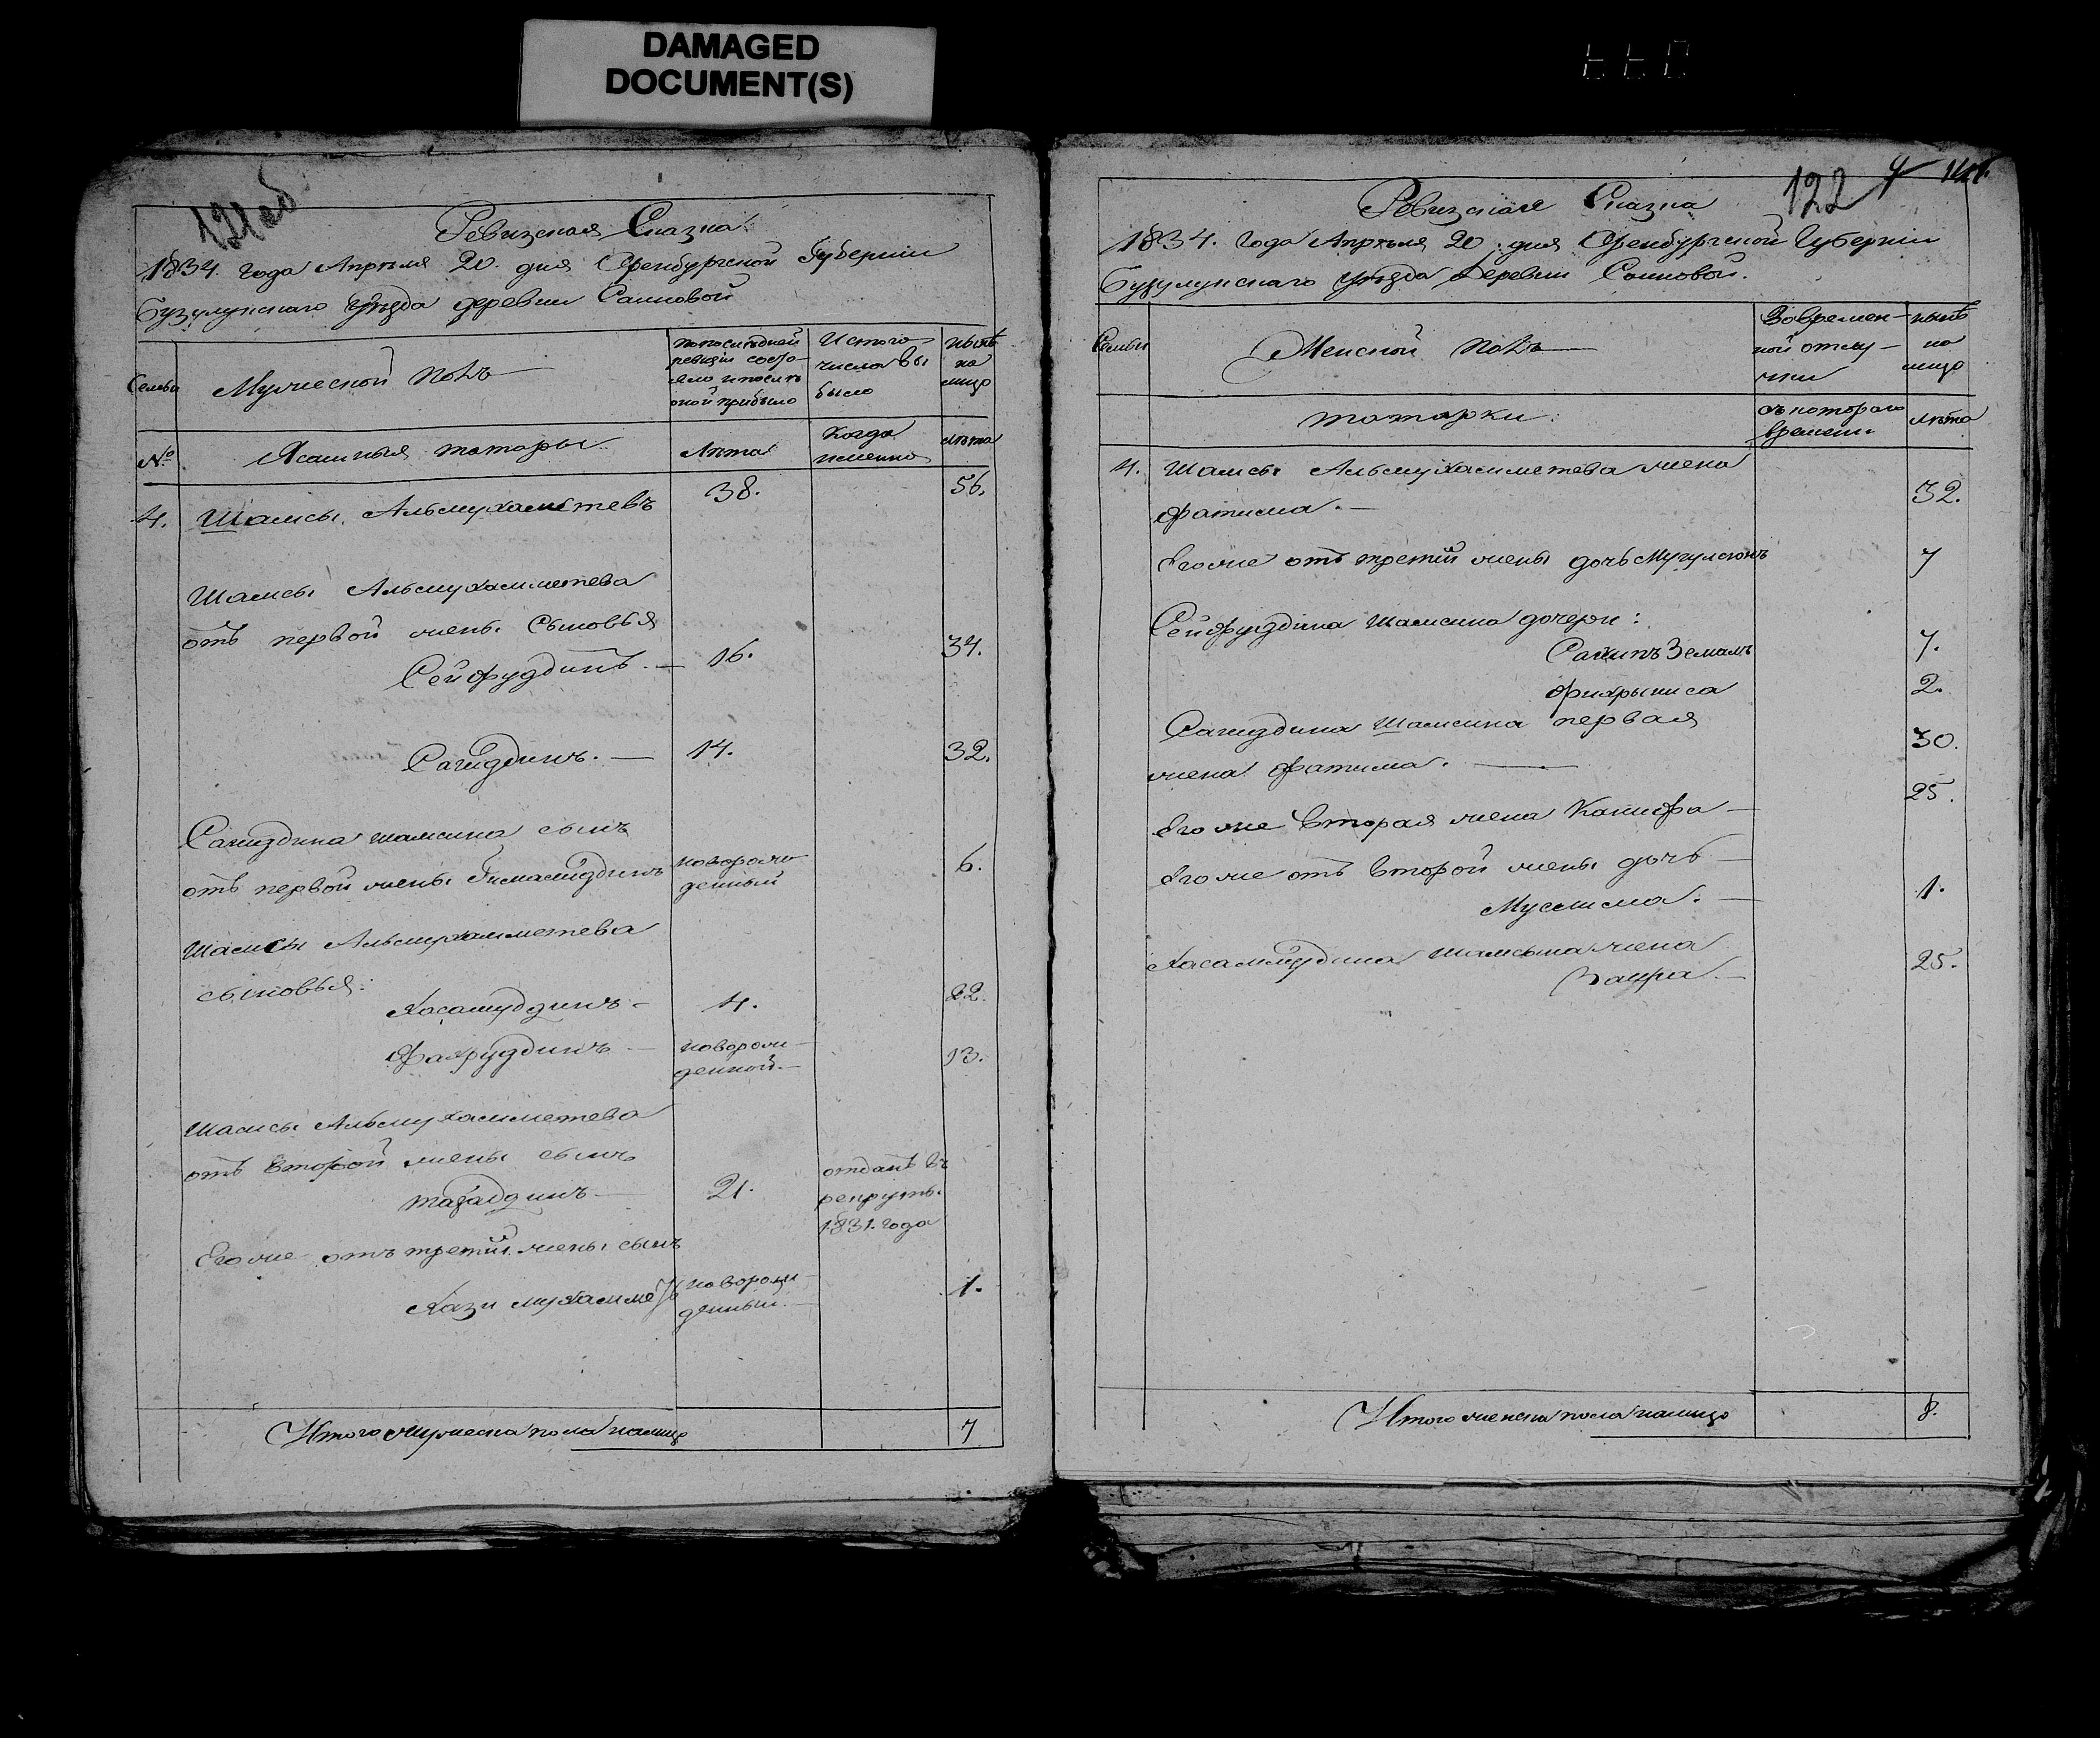 DAMAGED
DOCUMENT(S)
121об
Ревизская Сказка
1834. года Апрѣля 20. дня Оренбургской Губернiи
Бузулукскаго уѣзда деревни Саиновой
Семьи
Мужеской полъ
по последней
ревизiи состо-
яло и послѣ
оной прибыло
Истого
числа вы
было
нынѣ
на
лицо
№
Ясашныя татары
Лѣта
Когда
именно
лѣта
4. Шамсы Альмухаметевъ 38. 56.
Шамсы Альмухамметева
отъ первой жены сыновья
Сейфуддинъ. — 16. 34.
Сагиддинъ. — 14. 32.
Сагиздина шамсина сынъ
отъ первой жены Гимаиддинъ новорож-
денный 6.
Шамсы Альмухамметева
сыновья:
Хасамуддинъ — 4. 22.
Фахруддинъ — новорож-
денной. — 13.
Шамсы Альмухамметева
отъ второй жены сынъ
тазадинъ — 21. отданъ въ
рекруты.
1831. года
Егоже отъ третiй жены сынъ
Кази мухамметъ новорож-
денный. — 1.
Итого мужеска пола налицо 7
122
Ревизская Сказка
1834. года Апрѣля 20. дня Оренбургской Губернiи
Бузулукскаго уѣзда Деревни Саиновой.
Семьи
Женской полъ
Вовремен-
ной отлу-
чки
нынѣ
на
лицо
татарки.
съ котораго
времени
лѣта
4. Шамсы Альмухамметева жена
фатима. — 32.
Егоже отъ третiй жены дочь 7
Сейфуздина шамсина дочери:
7.
2.
Сагиздина Шамсина первая
жена фатима. — 30.
Егоже вторая жена Канифа — 25.
Егоже отъ второй жены дочь —
Муслима. — 1.
Хасамуздина шамсина жена
Заура. — 25.
Итого женска пола налицо 8.